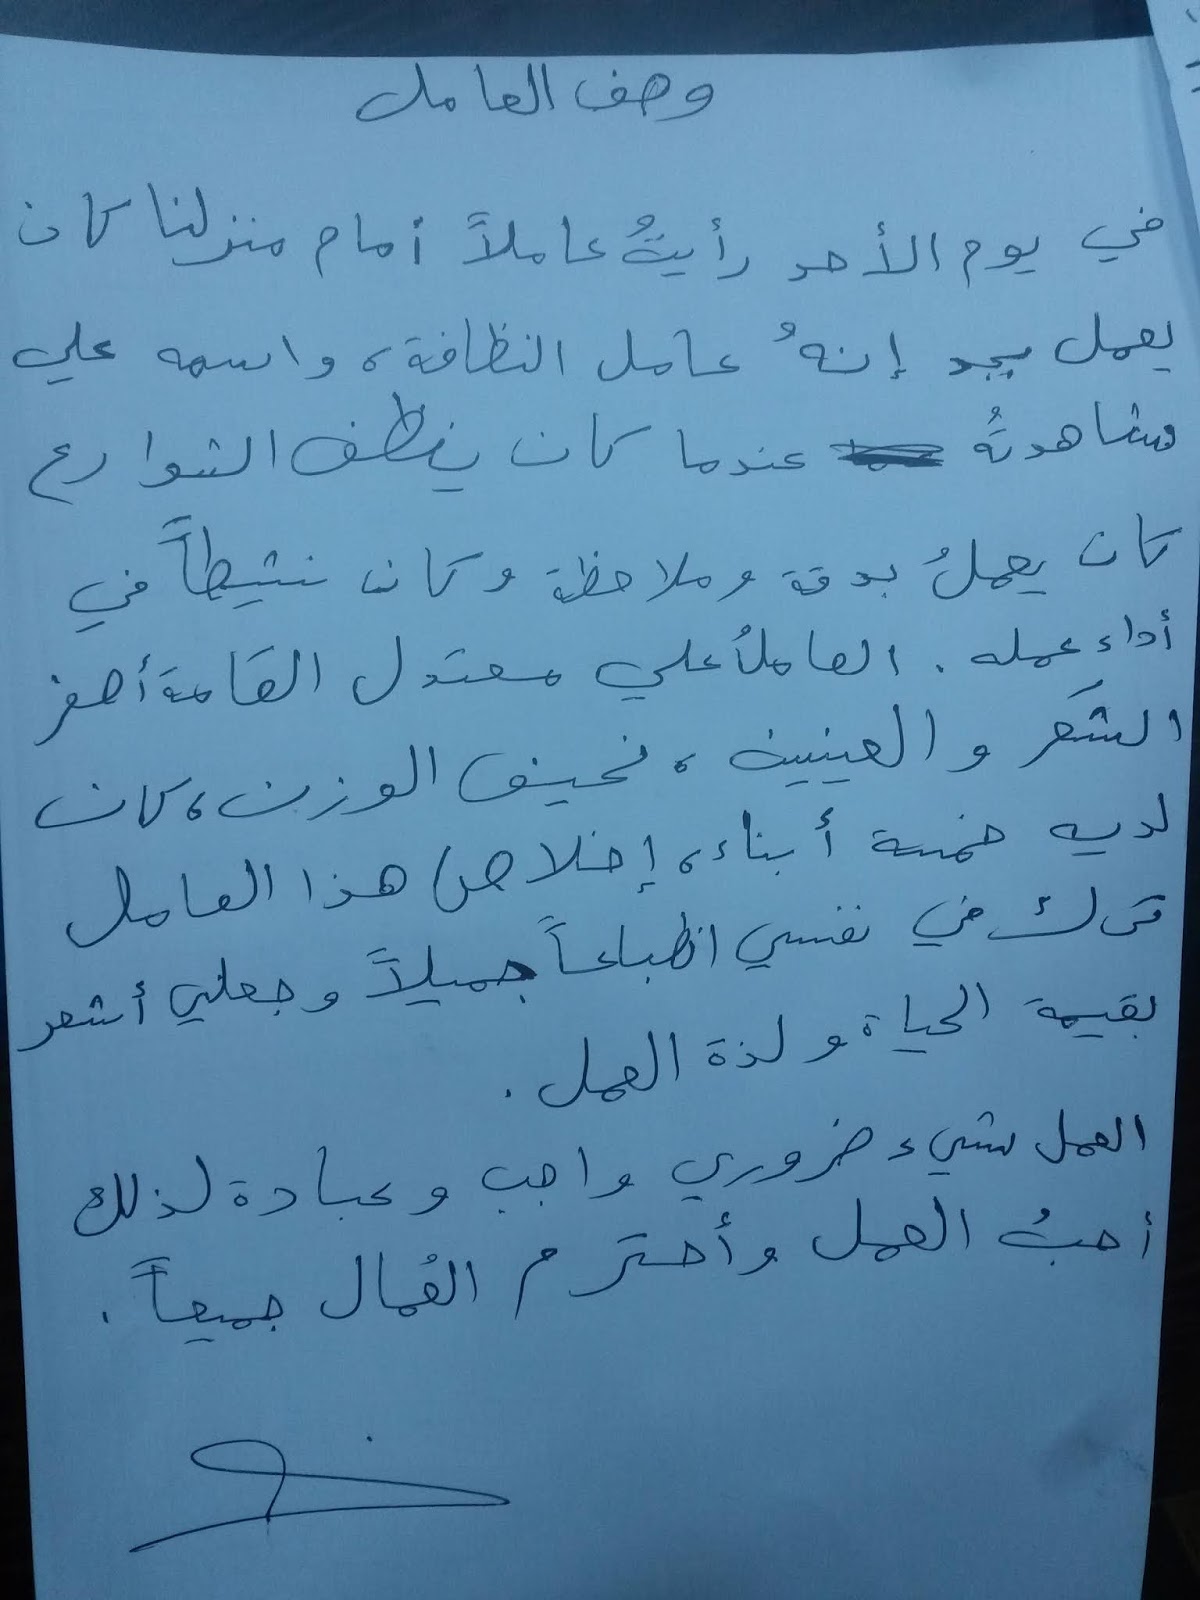 وصف العامل
في يوم الأحد رأيتُ عاملاً أمام منزلنا كان
يعمل بجد إنهُ عامل النظافة، واسمه علي
شاهدتهُ عندما كان ينظف الشوارع
كان يعملُ بدقة وملاحظة وكان نشيطاً في
أداء عمله. العاملُ علي معتدل القامة أصفر
الشَعر والعينين، نحيف الوزن، كان
لديه خمسة أبناء، إخلاص هذا العامل
ترك في نفسي انطباعاً جميلاً وجعلني أشعر
بقيمة الحياة ولذة العمل.
العمل شيء ضروري واجب وعبادة لذلك
أحبُ العمل وأحترم العُمال جميعاً.